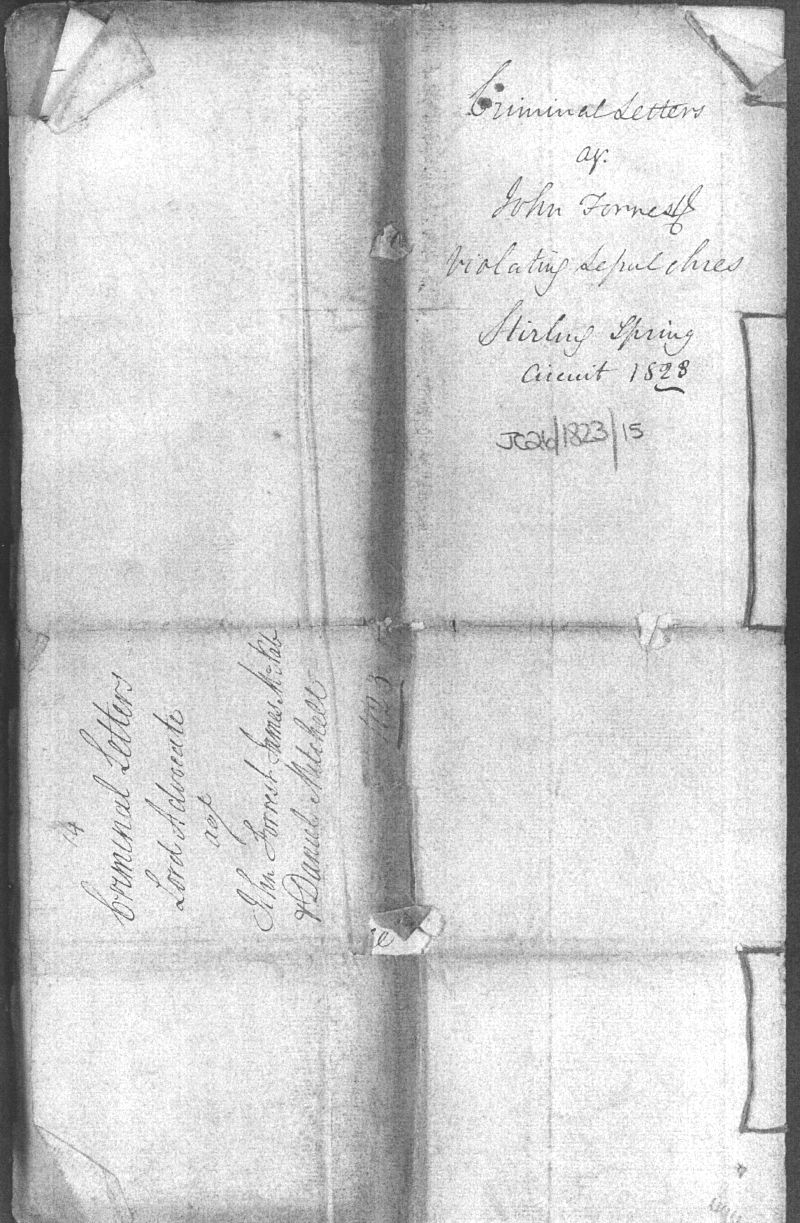 Criminal Letters
agt.
John Forrest
Violating Sepulchres
Stirling Spring
Circuit 1823
JC26/1823/15
14
Criminal Letters
Lord Advocate
agt
John Forrest James McNab
& Daniel Mitchell
1823